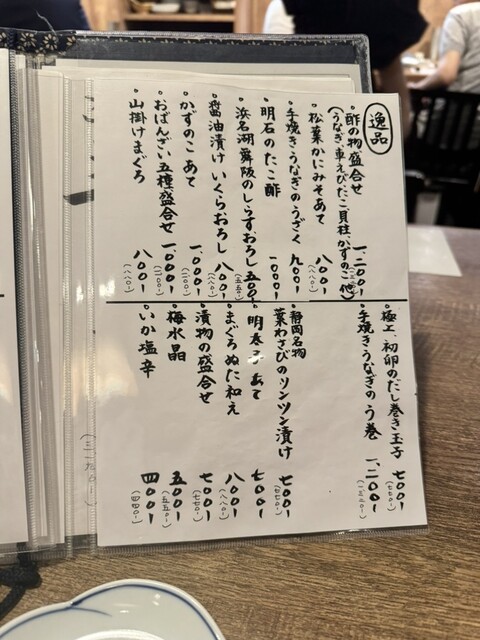 逸品
・酢の物盛合せ
(うなぎ、車えび、たこ、貝柱、かずのこ他)
一、二〇〇ー
・松葉かにみそあて
八〇〇ー
(八八〇ー)
・手焼きうなぎのうざく
九〇〇ー
・明石のたこ酢
一、〇〇〇ー
・浜名湖舞阪のしらすおろし
五〇〇ー
(五五〇ー)
・醤油漬けいくらおろし
八〇〇ー
(八八〇ー)
・かずのこあて
一、〇〇〇ー
(一一〇〇ー)
・おばんざい五種盛合せ
一、〇〇〇ー
(一一〇〇ー)
・山掛けまぐろ
八〇〇ー
(八八〇ー)
・極上、初卵のだし巻き玉子
七〇〇ー
(七七〇ー)
・手焼きうなぎのう巻
一、二〇〇ー
(一三二〇ー)
・静岡名物
葉わさびのツンツン漬け
七〇〇ー
(七七〇ー)
・明太子あて
七〇〇ー
・まぐろぬた和え
八〇〇ー
(八八〇ー)
・漬物の盛合せ
七〇〇ー
(七七〇ー)
・梅水晶
五〇〇ー
(五五〇ー)
・いか塩辛
四〇〇ー
(四四〇ー)